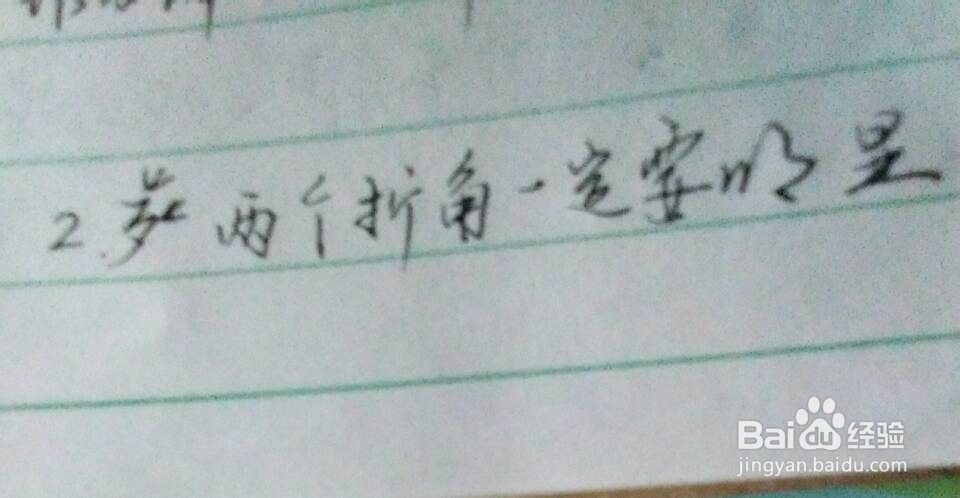 2. 两个折角一定要明显
Baidu 经验
jingyan.baidu.com